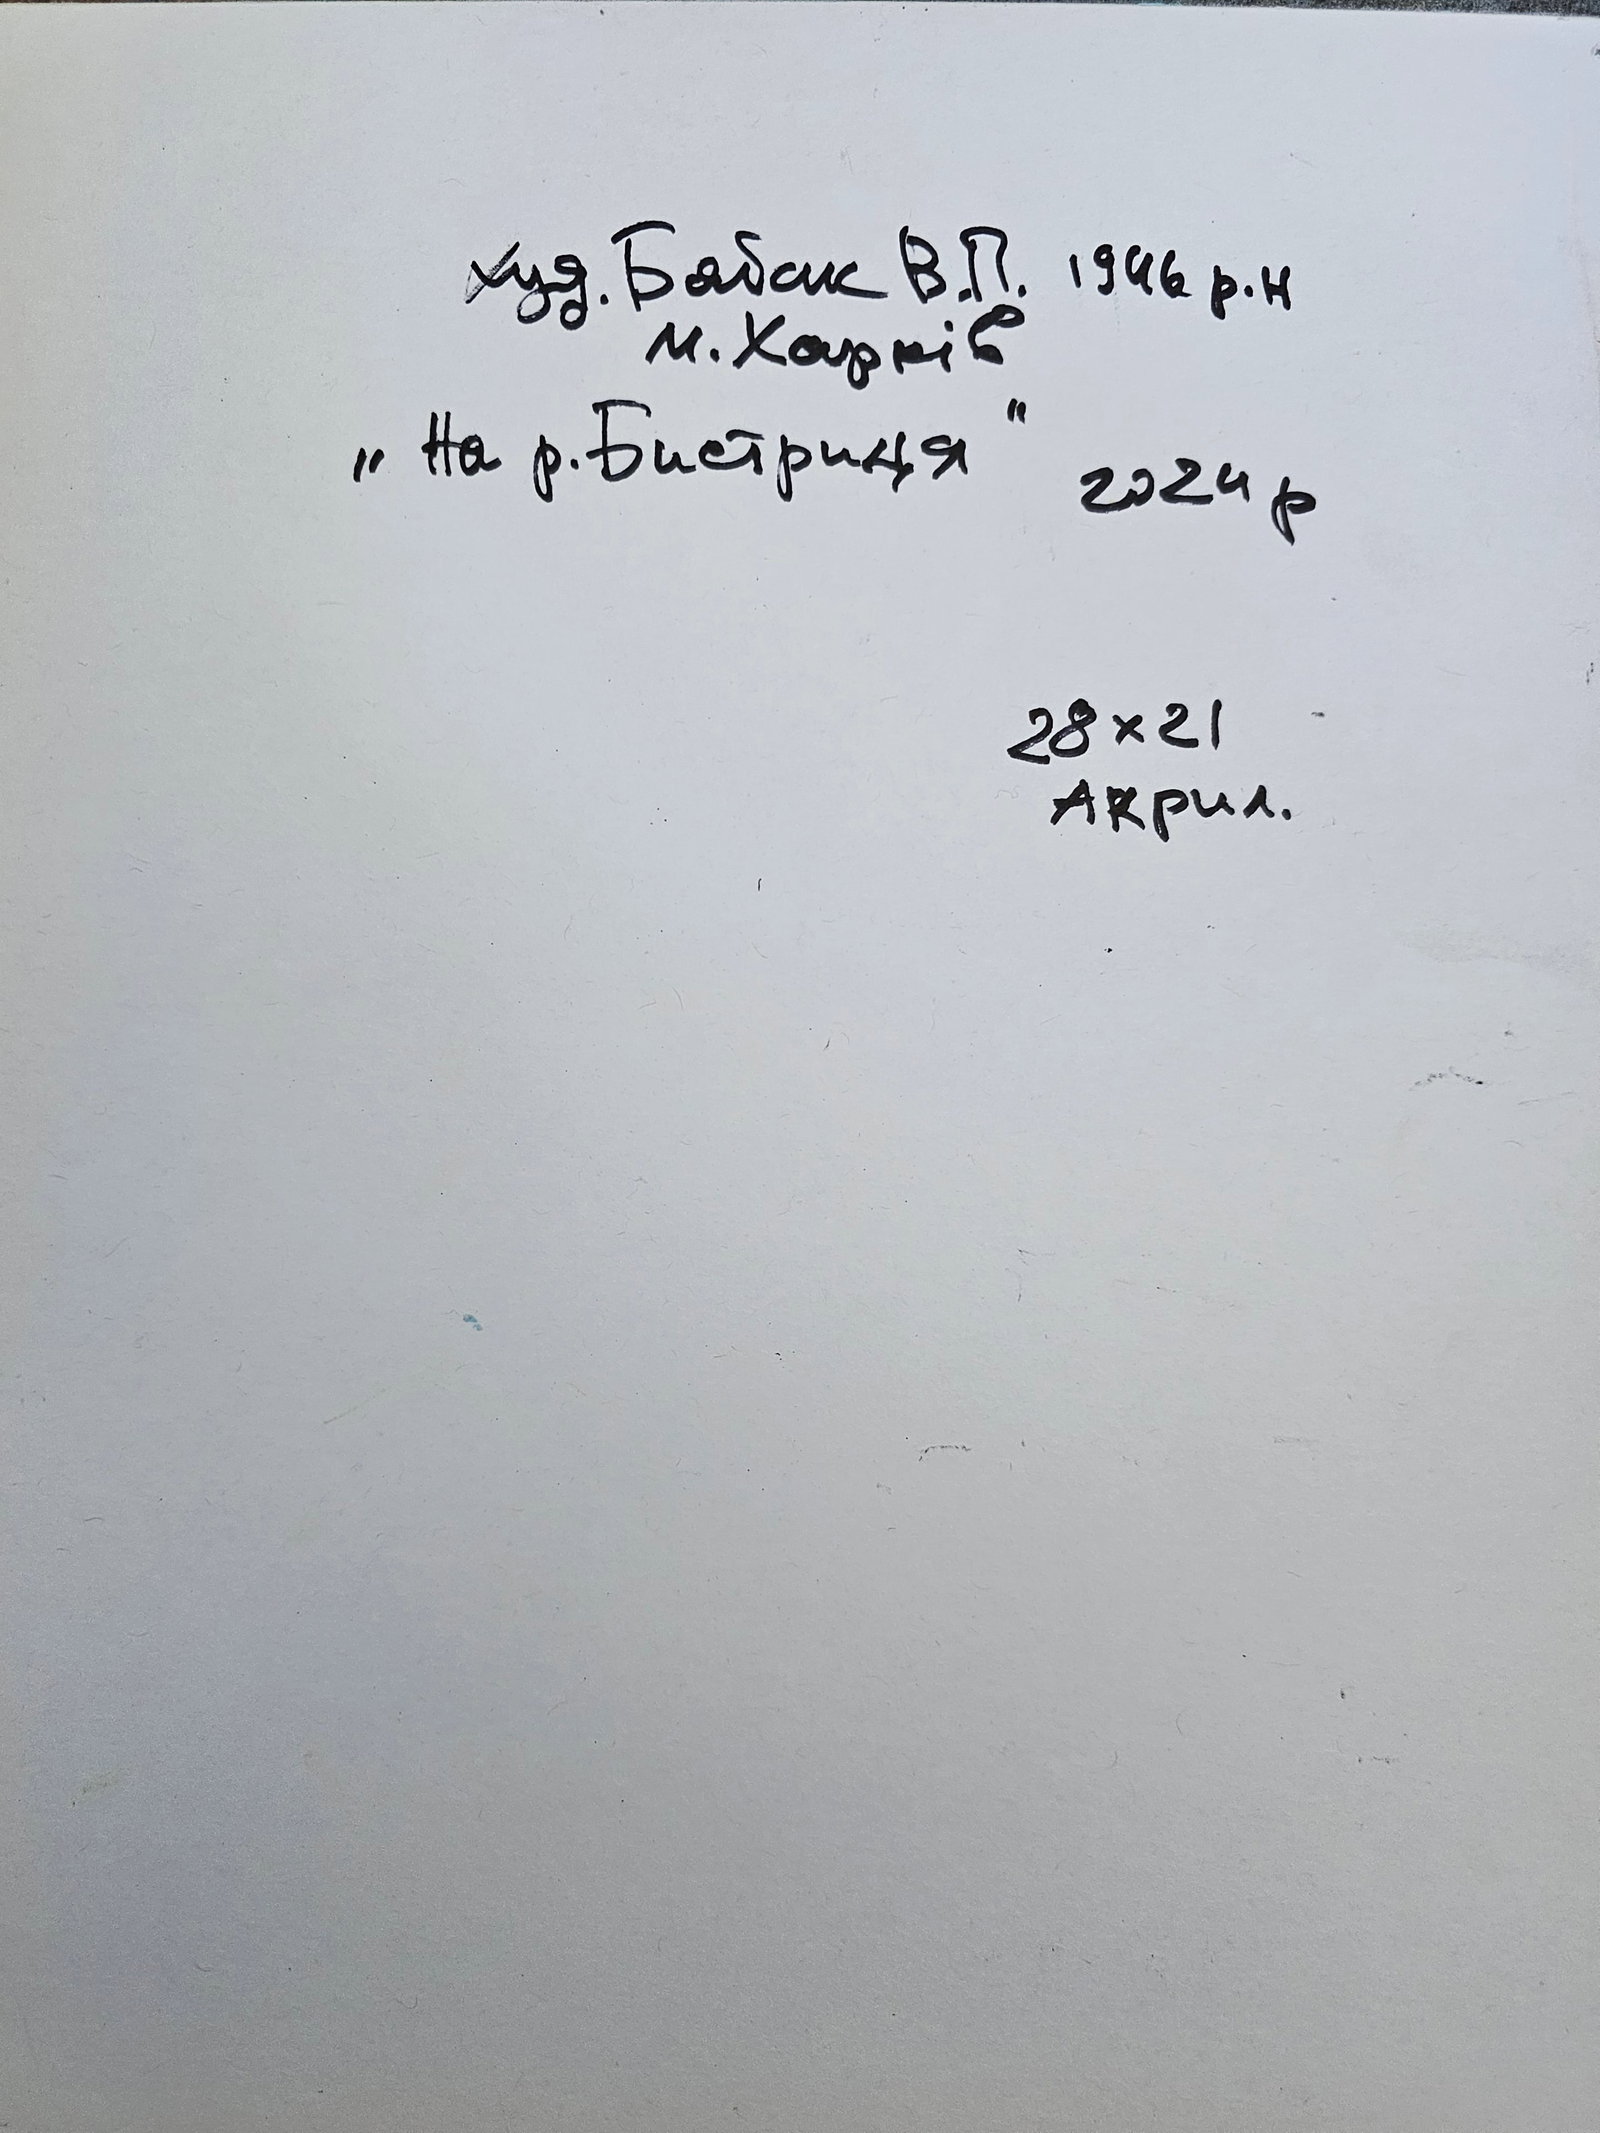 худ. Бабак В.П. 1946 р.н
м. Харків
„На р. Бистриця" 2024 р
28х21
Акрил.